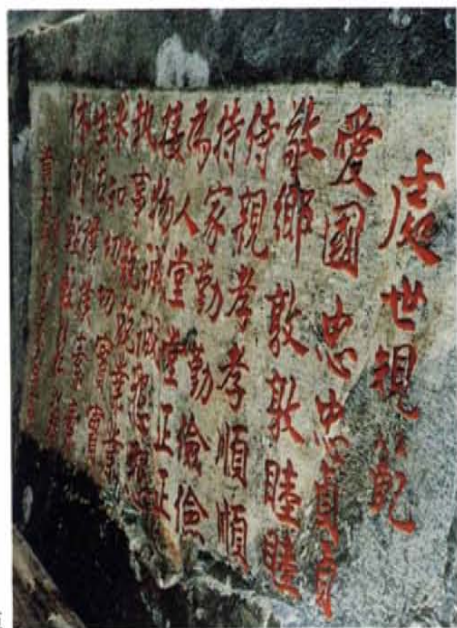 處世規範
愛國忠忠貞貞
敬鄉敦敦睦睦
侍親孝孝順順
持家勤勤儉儉
為人堂堂正正
接物誠誠懇懇
執事兢兢業業
求知切切實實
生活樸樸素素
休閒